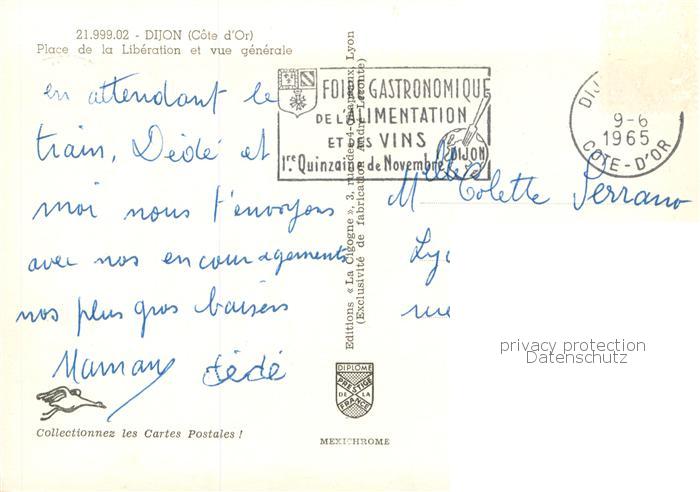 21.999.02 - DIJON (Côte d'Or)
Place de la Libération et vue générale
en attendant le
train, Dédé et
moi nous t'envoyons
avec nos encouragements
nos plus gros baisers
Maman Dédé
Collectionnez les Cartes Postales !
Editions « La Cigogne », 3, rue des 4-Chapeaux, Lyon
(Exclusivité de fabrication André Leconte)
DIPLOME
PRESTIGE
DE LA
FRANCE
MEXICHROME
FOIRE GASTRONOMIQUE
DE L'ALIMENTATION
ET DES VINS
1re Quinzaine de Novembre DIJON
DIJ
9-6
1965
COTE-D'OR
Melle Colette Serrano
Lyc
rue
privacy protection
Datenschutz